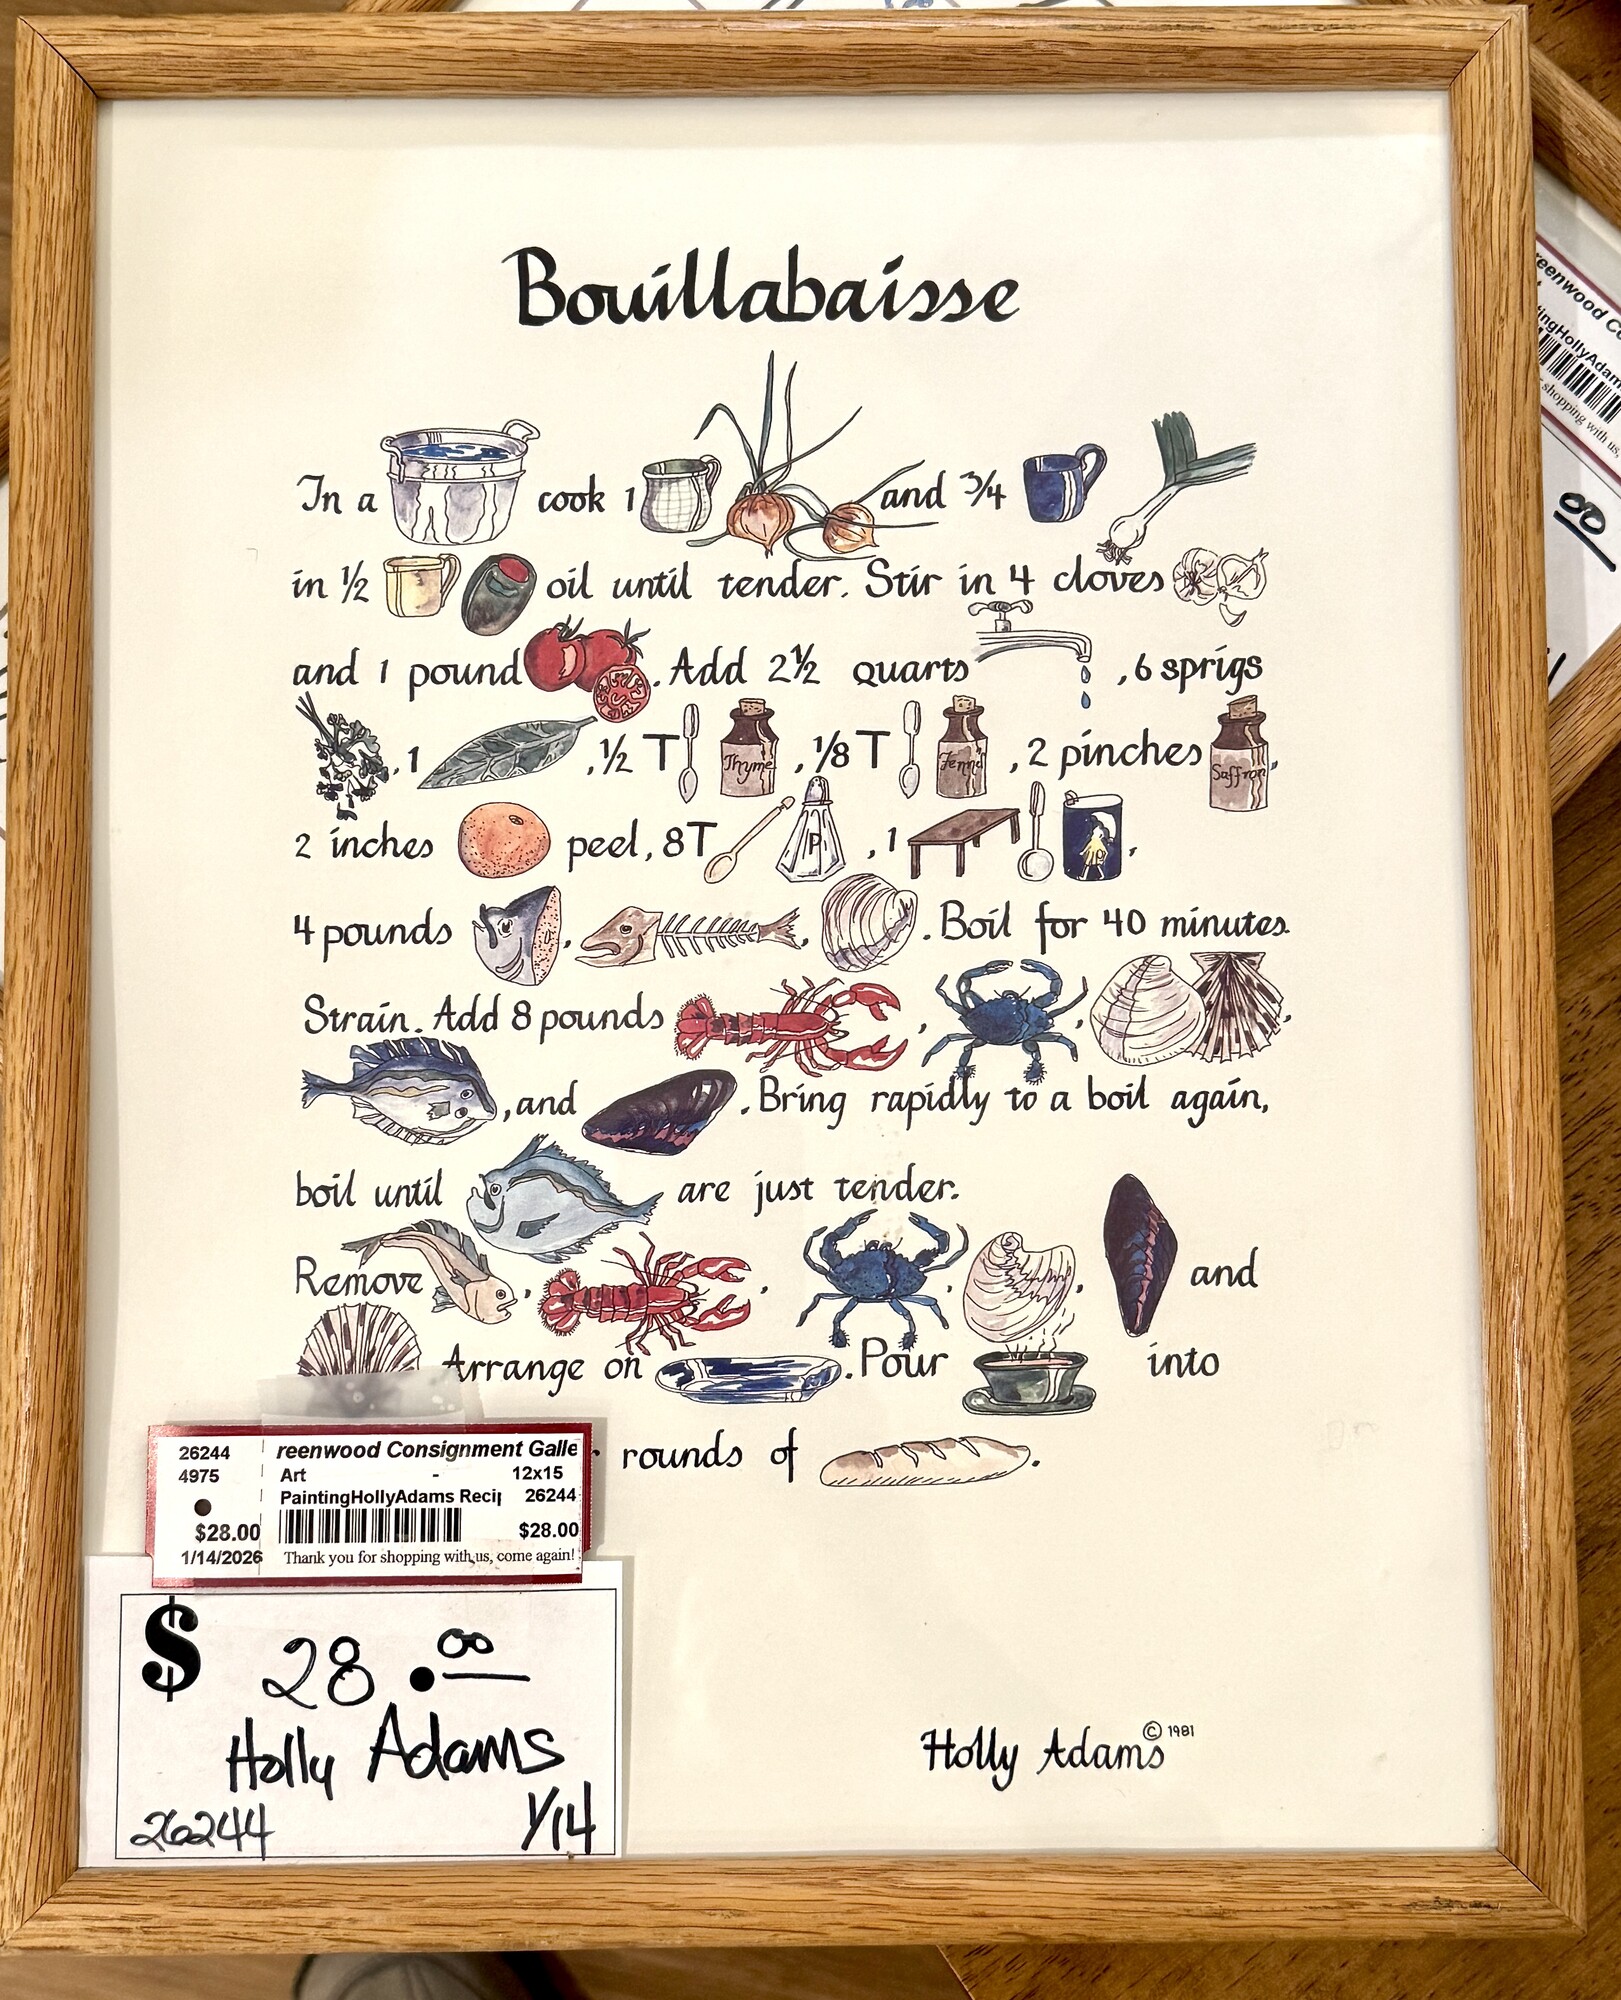 Bouillabaisse
In a cook 1 and 3/4
in 1/2 oil until tender. Stir in 4 cloves
and 1 pound . Add 2 1/2 quarts , 6 sprigs
, 1 , 1/2 T Thyme , 1/8 T Fennel , 2 pinches Saffron,
2 inches peel, 8T P , 1 ,
4 pounds , , . Boil for 40 minutes.
Strain. Add 8 pounds , , ,
, and . Bring rapidly to a boil again,
boil until are just tender.
Remove , , , , and
Arrange on . Pour into
rounds of .
Holly Adams © 1981
26244 reenwood Consignment Galle
4975 Art - 12x15
PaintingHollyAdams Recip 26244
$28.00 $28.00
1/14/2026 Thank you for shopping with us, come again!
$ 28.00
Holly Adams
26244 1/14
reenwood Co
tingHollyAdam
shopping with us,
00